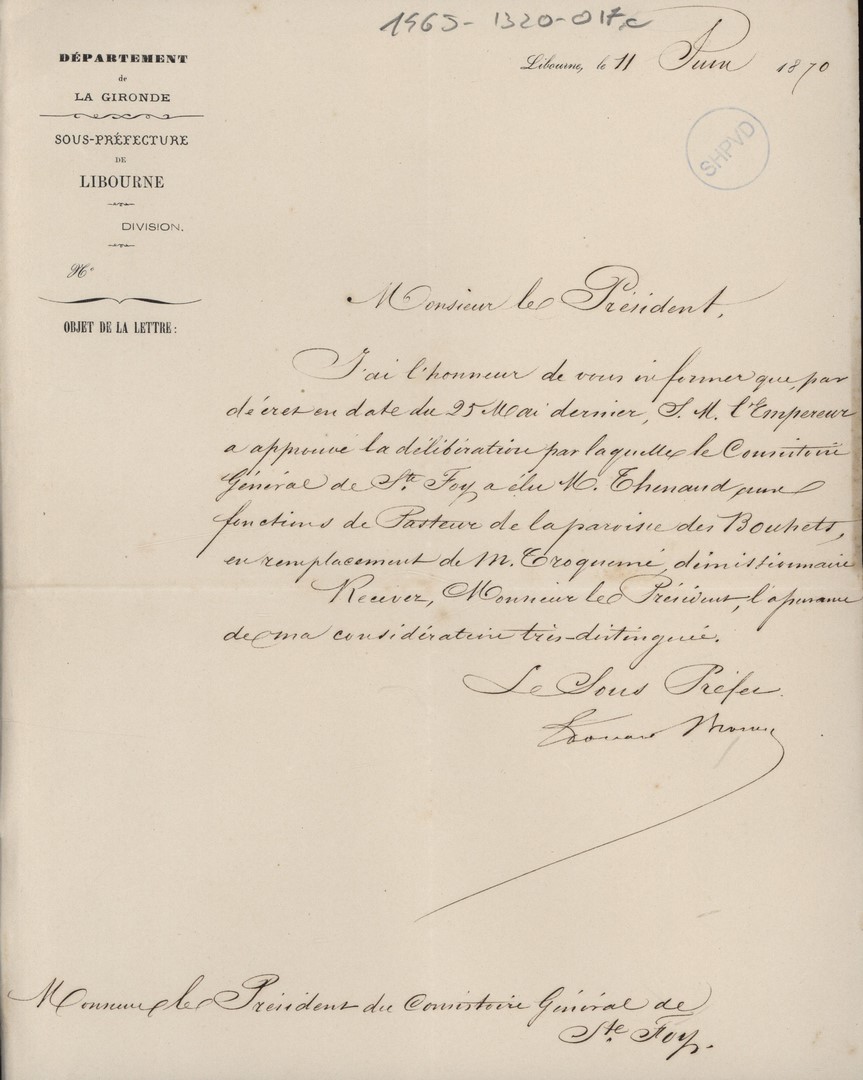 1965-1320-017c
DÉPARTEMENT
de
LA GIRONDE
SOUS-PRÉFECTURE
DE
LIBOURNE
DIVISION.
N°
OBJET DE LA LETTRE:
Libourne, le 11 Juin 1870
SHPVD
Monsieur le Président,
J'ai l'honneur de vous informer que, par
décret en date du 25 Mai dernier, S. M. l'Empereur
a approuvé la délibération par laquelle le Consistoire
Général de Ste Foy a élu M. Thenaud aux
fonctions de Pasteur de la paroisse des Bouhets,
en remplacement de M. Troquemé, démissionnaire
Recevez, Monsieur le Président, l'assurance
de ma considération très-distinguée.
Le Sous Préfet
Monsieur le Président du Consistoire Général de
Ste Foy.